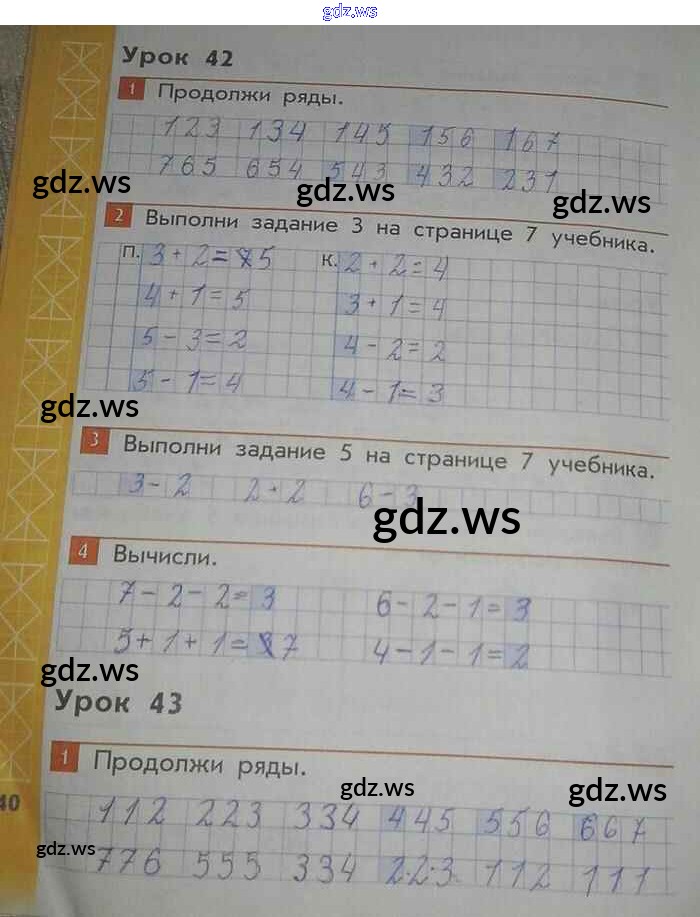 gdz.ws
Урок 42
1 Продолжи ряды.
123 134 145 156 167
765 654 543 432 231
gdz.ws gdz.ws gdz.ws
2 Выполни задание 3 на странице 7 учебника.
П. 3+2=5 К. 2+2=4
4+1=5 3+1=4
5-3=2 4-2=2
5-1=4 4-1=3
gdz.ws
3 Выполни задание 5 на странице 7 учебника.
3-2 2+2 6-3
gdz.ws
4 Вычисли.
7-2-2=3 6-2-1=3
5+1+1=7 4-1-1=2
gdz.ws
Урок 43
1 Продолжи ряды.
gdz.ws gdz.ws
40
112 223 334 445 556 667
gdz.ws
776 555 334 223 112 111